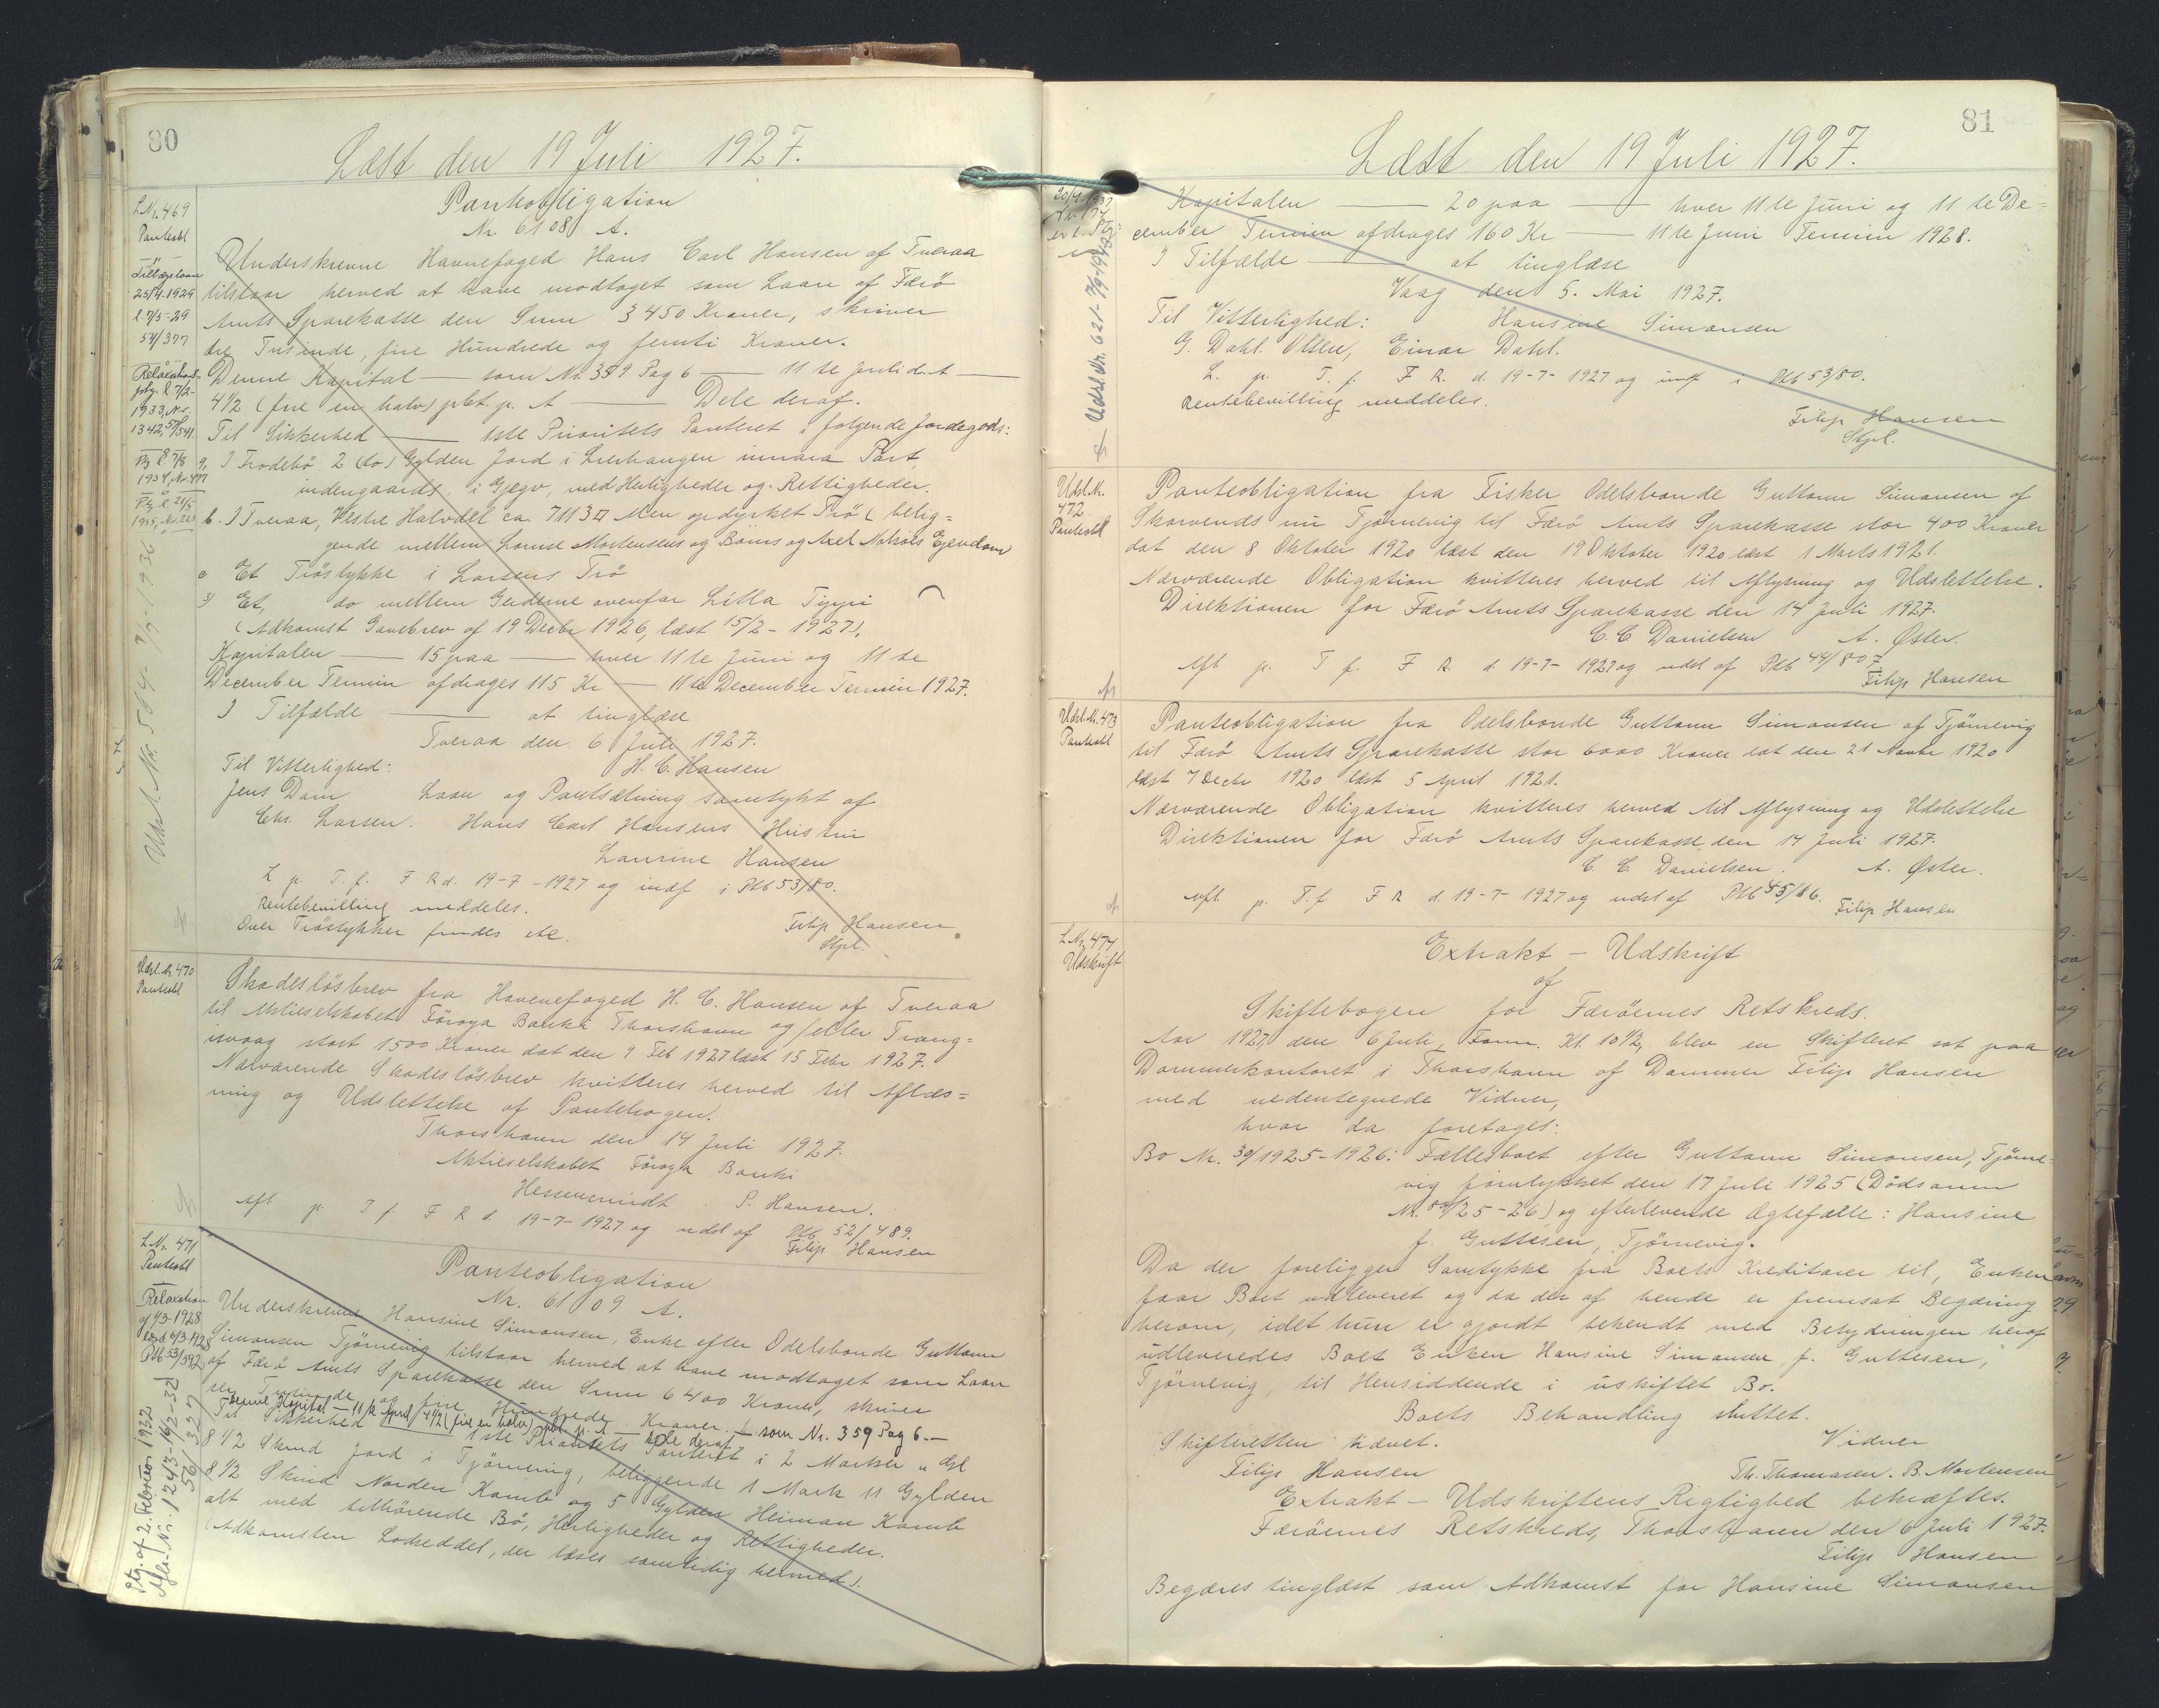 80
Læst den 19 Juli 1927.
L Nr. 469
Panteobl
Tillægslaan
25/4. 1929
l. 7/5-29
54/377
Relaxations-
patg. l. 7/2-
1933, Nr.
1342, 57/541.
Ptg. l. 7/8
1934, Nr. 497
Ptg. l. 21/5
1935, Nr. 223
Udsl. Nr. 564 - 7/7-1936
Panteobligation
Nr. 6108 A.
Underskrevne Havnefoged Hans Carl Hansen af Tveraa
tilstaar herved at have modtaget som Laan af Færö
Amts Sparekasse den Sum 3450 Kroner, skriver
tre Tusinde, fire Hundrede og femti Kroner.
Denne Kapital — som Nr. 359 Pag 6 — 11 te Juli d. A —
4½ (fire en halv) pct. p. A — Dele deraf.
Til Sikkerhed — 1ste Prioritets Panteret i følgende Jordegods:
a, I Frodebö 2 (to) Gylden Jord i Lerhangen innara Part,
indengaards, i Gjegv, med Herligheder og Rettigheder.
b. I Tveraa, Vestre Halvdel ca. 7113 □ Alen opdyrket Trö (belig=
gende mellem Louise Mortensens og Börns og Axel Nolsøes Ejendom
c Et Tröstykke i Larsens Trö
d) Et, do mellem Gerderne ovenfor Litla Tippi
(Adkomst Gavebrev af 19 Decbr 1926, læst 15/2 - 1927).
Kapitalen — 15 paa — hver 11 te Juni og 11 te
December Termin afdrages 115 Kr — 11 te December Termin 1927.
I Tilfælde — at tinglæse
Tveraa den 6 Juli 1927.
Til Vitterlighed: H. C. Hansen
Jens Dam Laan og Pantsætning samtykt af
Chr. Larsen. Hans Carl Hansens Hustru
Laurine Hansen
L. p. T. f. F R d. 19-7-1927 og indf i Ptb 53/80.
Rentebevilling meddeles.
Over Tröstykker findes ikke. Filip Hansen
Stpl.
Udsl. Nr. 470
Panteobl
Skadeslösbrev fra Havnefoged H. C. Hansen af Tveraa
til Aktieselskabet Föroya Banki Thorshavn og/eller Trang=
isvaag stort 1500 Kroner dat den 9 Feb 1927 læst 15 Febr 1927.
Nærværende Skadeslösbrev kvitteres herved til Aflæs=
ning og Udslettelse af Pantebogen.
Thorshavn den 14 Juli 1927.
Aktieselskabet Föroya Banki
P. Hansen.
Afl p. T f. F R d. 19-7-1927 og udsl af Ptb 52/489.
Filip Hansen
L Nr. 471
Panteobl
Relaxation
af 1/3-1928
læst 6/3-1928
Ptb 53/592
Ptg. af 2. Februar 1932
Afl.-Nr. 1243-16/2-32
56/327
Panteobligation
Nr. 6109 A.
Underskrevne Hansine Simonsen, Enke efter Odelsbonde Guttorm
Simonsen Tjörnevig tilstaar herved at have modtaget som Laan
af Færö Amts Sparekasse den Sum 6400 Kroner, skriver
sex Tusinde og fire Hundrede Kroner. — som Nr. 359 Pag 6. —
Denne Kapital — 11 te April / 4½ (fire en halv) pct p. A — Dele deraf
Til Sikkerhed — 1ste Prioritets Panteret i 2 Marker „ Gyl
8½ Skind Jord i Tjörnevig, beliggende 1 Mark 11 Gylden
8½ Skind Norden Kamb og 5 Gylden Heiman Kamb
alt med tilhörende Bö, Herligheder og Rettigheder.
(Adkomsten Lodseddel, der læses samtidig hermed).
81
Læst den 19 Juli 1927.
Udsl. Nr. 621 - 7/9-1943
Kapitalen — 20 paa — hver 11 te Juni og 11 te De=
cember Termin afdrages 160 Kr — 11 te Juni Termin 1928.
I Tilfælde — at tinglæse
Vaag den 5. Mai 1927.
Til Vitterlighed: Hansine Simonsen
G. Dahl. Olsen, Einar Dahl.
L. p. T. f. F R. d. 19-7-1927 og indf i Ptb 53/80.
Rentebevilling meddeles.
Filip Hansen
Stpl.
Udsl. Nr.
472
Panteobl
Panteobligation fra Fisker Odelsbonde Guttorm Simonsen af
Skarvends nu Tjørnevig til Færö Amts Sparekasse stor 400 Kroner
dat den 8 Oktober 1920 læst den 19 Oktober 1920 læst 1 Marts 1921.
Nærværende Obligation kvitteres herved til Aflysning og Udslettelse.
Direktionen for Færö Amts Sparekasse den 14 Juli 1927.
C. C. Danielsen A. Øster.
Afl p. T f. F R. d. 19-7-1927 og udsl af Ptb 44/807
Filip Hansen
Udsl. Nr. 473
Panteobl
Panteobligation fra Odelsbonde Guttorm Simonsen af Tjörnevig
til Færö Amts Sparekasse stor 6000 Kroner dat den 21 Novbr 1920
læst 7 Decbr 1920 læst 5 April 1921.
Nærværende Obligation kvitteres herved til Aflysning og Udslettelse
Direktionen for Færö Amts Sparekasse, den 14 Juli 1927.
C. C. Danielsen. A. Øster.
Afl. p. T. f F R d. 19-7-1927 og udsl af Ptb 45/86.
Filip Hansen
L Nr. 474
Udskrift
Extrakt - Udskrift
af
Skiftebogen for Færöernes Retskreds.
Aar 1927 den 6 Juli, Form. Kl. 10½, blev en Skifteret sat paa
Dommerkontoret i Thorshavn af Dommer Filip Hansen
med nedentegnede Vidner,
hvor da foretages:
Bo Nr. 39/1925-1926: Fællesboet efter Guttorm Simonsen, Tjörne=
vig forulykket den 17 Juli 1925 (Dödsanm
Nr. 50/25-26) og efterlevende Ægtefælle: Hansine
f. Guttesen, Tjörnevig.
Da der foreligger Samtykke fra Boets Kreditorer til, Enken
faar Boet udleveret og da der af hende er fremsat Begæring
herom, idet hun er gjordt bekendt med Betydningen heraf
udleveredes Boet Enken Hansine Simonsen, f. Guttesen,
Tjörnevig, til Hensiddende i uskiftet Bo.
Boets Behandling sluttet.
Skifteretten hævet. Vidner
Filip Hansen Th. Thomasen. B. Mortensen
Extrakt - Udskriftens Rigtighed bekræftes.
Færöernes Retskreds, Thorshavn den 6 Juli 1927.
Filip Hansen
Begæres tinglæst som Adkomst for Hansine Simonsen